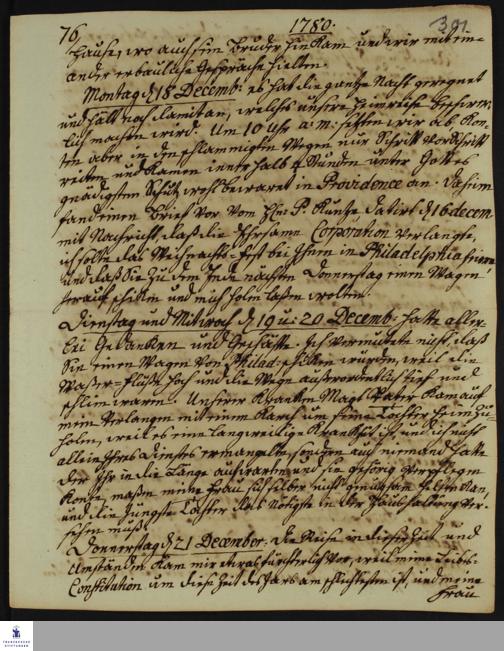 76, 1780. 391
Hause, wo auch sein Bruder hin kam und wir mit ein-
ander erbauliche Gespräche hielten.
Montag d 18 Decemb: es hat die gantze Nacht geregnet
und hält noch damit an, welches unsere Heimreise beschwer-
lich machen wird. Um 10 Uhr a: m: setzten wir ab kon-
ten aber in den schlammigten Wegen nur Schritt vor Schritt
reiten und kamen innerhalb 4 Stunden unter Gottes
gnädigsten Schutz wohl bewaret in Providence an. Daheim
fand einen Brief vor von Hn: P. Kuntze, datirt d 16 decem
mit Nachricht, daß die Ehrsame Corporation verlangte,
ich solte das Weihnachts-Fest bei Ihnen in Philadelphia feiern
und daß Sie zu dem Ende nächsten Donnerstag einen Wagen
herauf schicken und mich holen laßen wolten.
Dienstag und Mitwoch d 19 u: 20 Decemb: hatte aller-
lei Gedanken und Geschäfte. Ich vermutete nicht, daß
Sie einen Wagen von Philad: schicken würden, weil die
Waßer-Flüße hoch und die Wege außerordentlich tief und
schlim waren. Unserer Kranken Magd Vater kam auf
mein Verlangen mit einem Karch um seine Tochter heim zu
holen, weil es eine langweilige Krankheit ist, und ich nicht
allein Ihres Dienstes ermangelte, sondern auch niemand hatte
der Ihr in die Länge aufwarten und sie gehörig verpflegen
konte, maßen meine Frau sich selber nicht gnugsam helfen kan,
und die jüngste Tochter das Nötigste in der Haushaltung ver-
sehen muß.
Donnerstag d 21 December. Die Reise in dieser Zeit und
Umständen kam mir etwas fürchterlich vor, weil meine Leibes-
Constitution um diese Zeit des Jars am schlechtesten ist, und meine
Frau
FRANCKESCHE
STIFTUNGEN